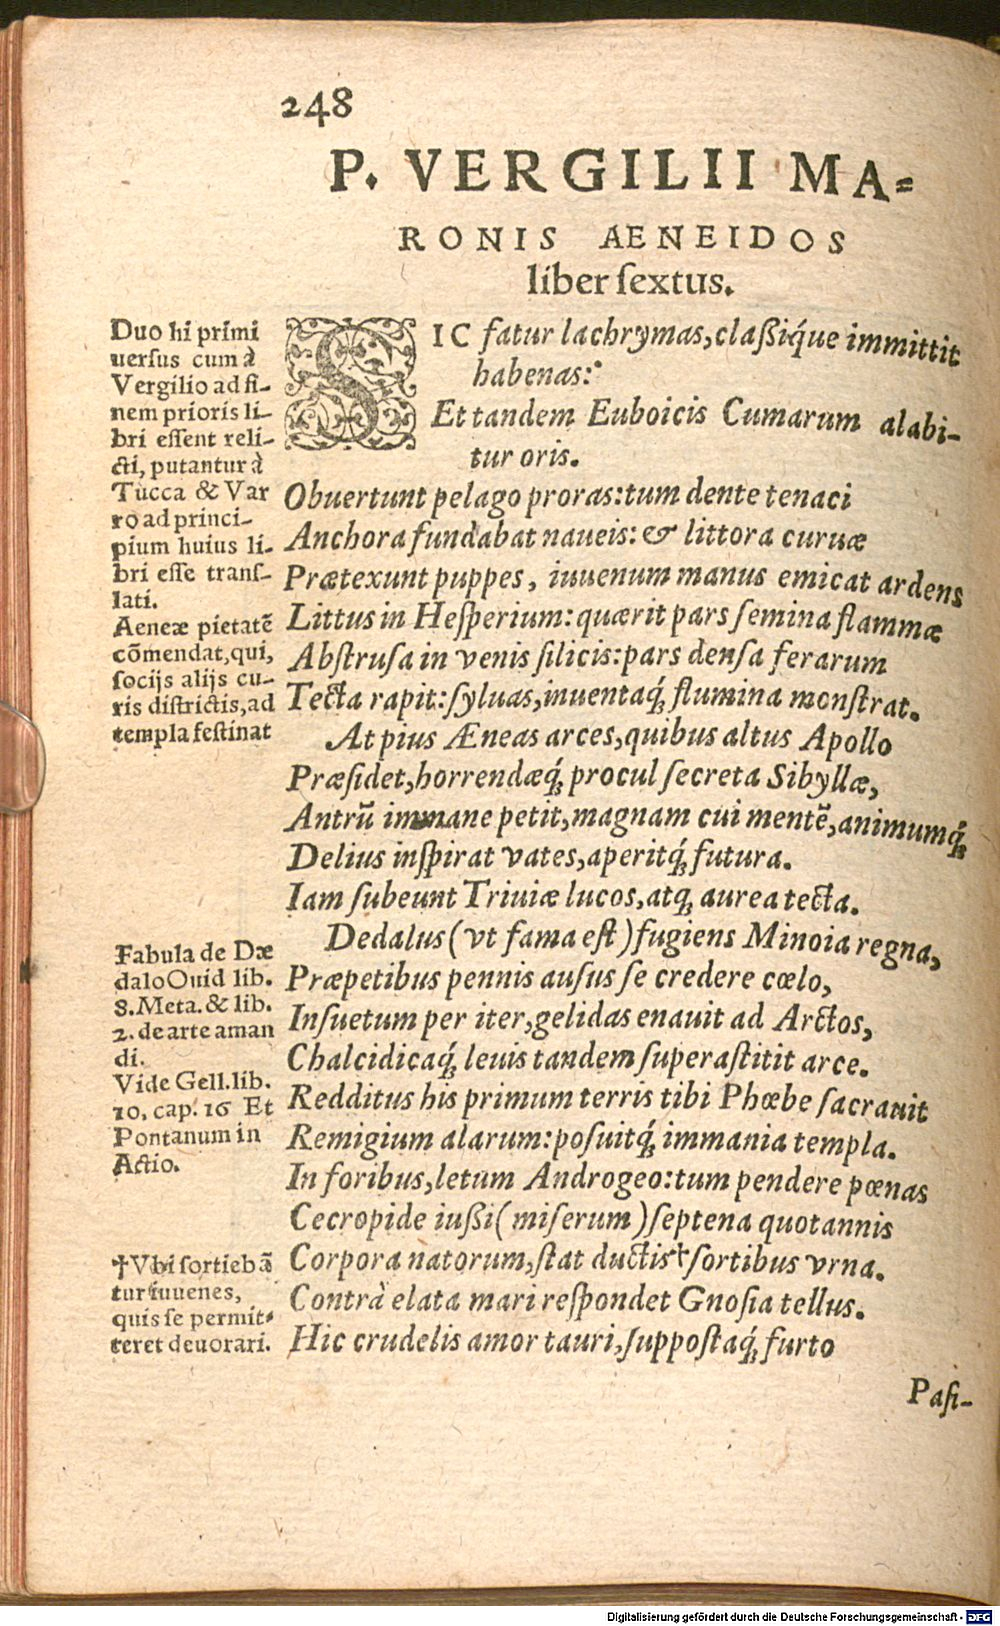 248
P. VERGILII MA=
RONIS AENEIDOS
liber ſextus.
SIC fatur lachrymas, claßiq́ue immittit
habenas:
Et tandem Euboicis Cumarum alabi-
tur oris.
Obuertunt pelago proras: tum dente tenaci
Anchora fundabat naueis: & littora curuæ
Prætexunt puppes, iuuenum manus emicat ardens
Littus in Heſperium: quærit pars ſemina flammæ
Abſtruſa in venis ſilicis: pars denſa ferarum
Tecta rapit: ſyluas, inuentaq́; flumina monſtrat.
At pius Æneas arces, quibus altus Apollo
Præſidet, horrendæq́; procul ſecreta Sibyllæ,
Antrũ immane petit, magnam cui mentẽ, animumq́;
Delius inſpirat vates, aperitq́; futura.
Iam ſubeunt Triuiæ lucos, atq; aurea tecta.
Dedalus (vt fama eſt) fugiens Minoia regna,
Præpetibus pennis auſus ſe credere cœlo,
Inſuetum per iter, gelidas enauit ad Arctos,
Chalcidicaq́; leuis tandem ſuperaſtitit arce.
Redditus his primum terris tibi Phœbe ſacrauit
Remigium alarum: poſuitq́; immania templa.
In foribus, letum Androgeo: tum pendere pœnas
Cecropide iußi (miſerum) ſeptena quotannis
Corpora natorum, ſtat ductis † ſortibus vrna.
Contrà elata mari reſpondet Gnoſia tellus.
Hic crudelis amor tauri, ſuppoſtaq́; furto
Paſi-
Duo hi primi
uerſus cum à
Vergilio ad fi-
nem prioris li-
bri eſſent reli-
cti, putantur à
Tucca & Var
ro ad princi-
pium huius li-
bri eſſe tranſ-
lati.
Aeneæ pietatẽ
cõmendat, qui,
ſocijs alijs cu-
ris diſtrictis, ad
templa feſtinat
Fabula de Dæ
dalo Ouid lib.
8. Meta. & lib.
2. de arte aman
di.
Vide Gell. lib.
10. cap. 16 Et
Pontanum in
Actio.
† Vbi ſortiebã
tur iuuenes,
quis ſe permit=
teret deuorari.
Digitalisierung gefördert durch die Deutsche Forschungsgemeinschaft - DFG